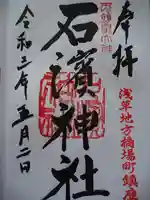 奉拝
浅草地方橋場町鎮座
石濱神社
令和三年五月二日